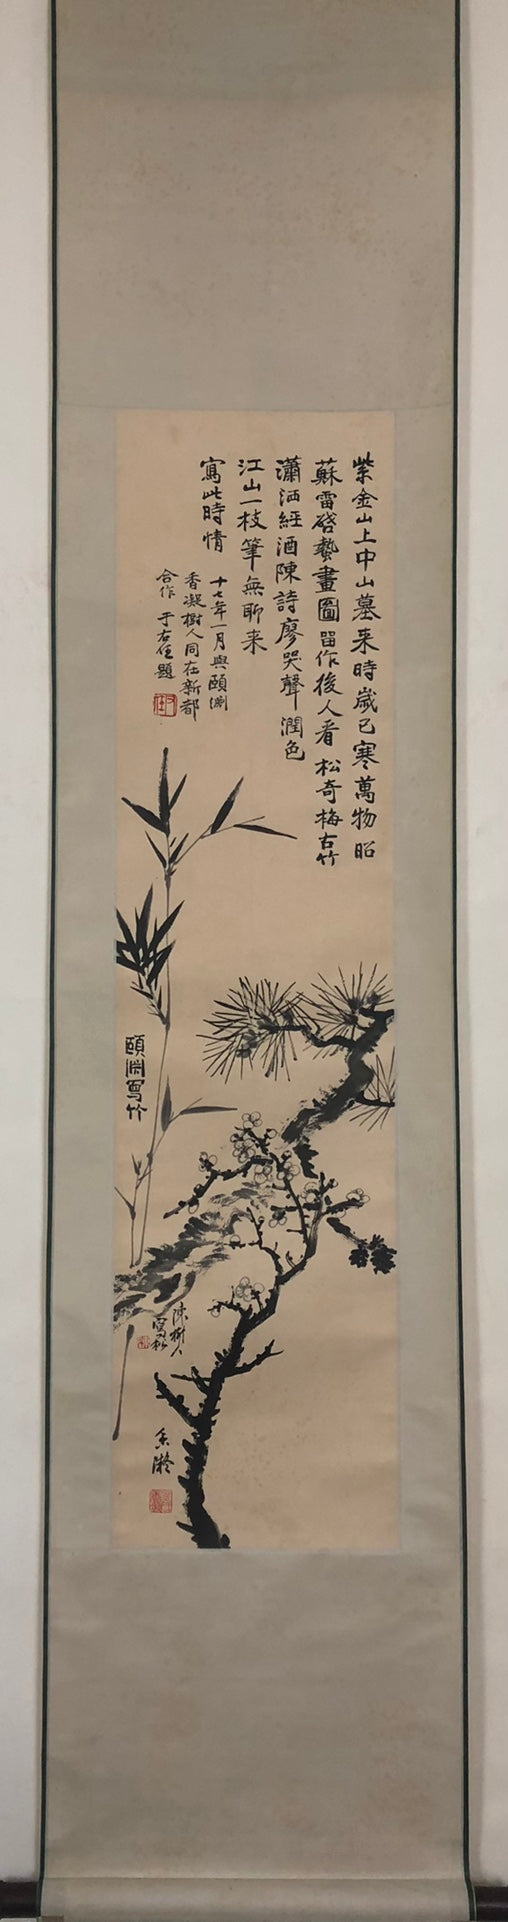 紫金山上中山墓来時歲已寒萬物昭
蘇雷啓蟄畫圖留作後人看松奇梅古竹
瀟洒經酒陳詩廖哭聲潤色
江山一枝筆無聊来
寫此時情
十七年一月與頤淵
香凝樹人同在新都
合作 于右任題
頤淵寫竹
陳樹人
寫松
香凝